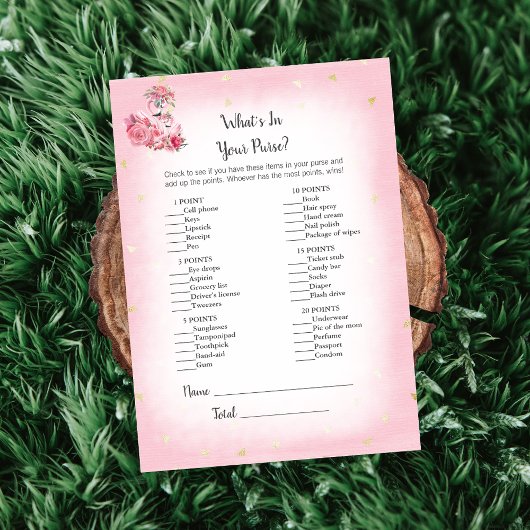 What's In
Your Purse?
Check to see if you have these items in your purse and
add up the points. Whoever has the most points, wins!
1 POINT
____Cell phone
____Keys
____Lipstick
____Receipt
____Pen
3 POINTS
____Eye drops
____Aspirin
____Grocery list
____Driver's license
____Tweezers
5 POINTS
____Sunglasses
____Tampon/pad
____Toothpick
____Band-aid
____Gum
10 POINTS
____Book
____Hair spray
____Hand cream
____Nail polish
____Package of wipes
15 POINTS
____Ticket stub
____Candy bar
____Socks
____Diaper
____Flash drive
20 POINTS
____Underwear
____Pic of the mom
____Perfume
____Passport
____Condom
Name ____________________
Total ____________________